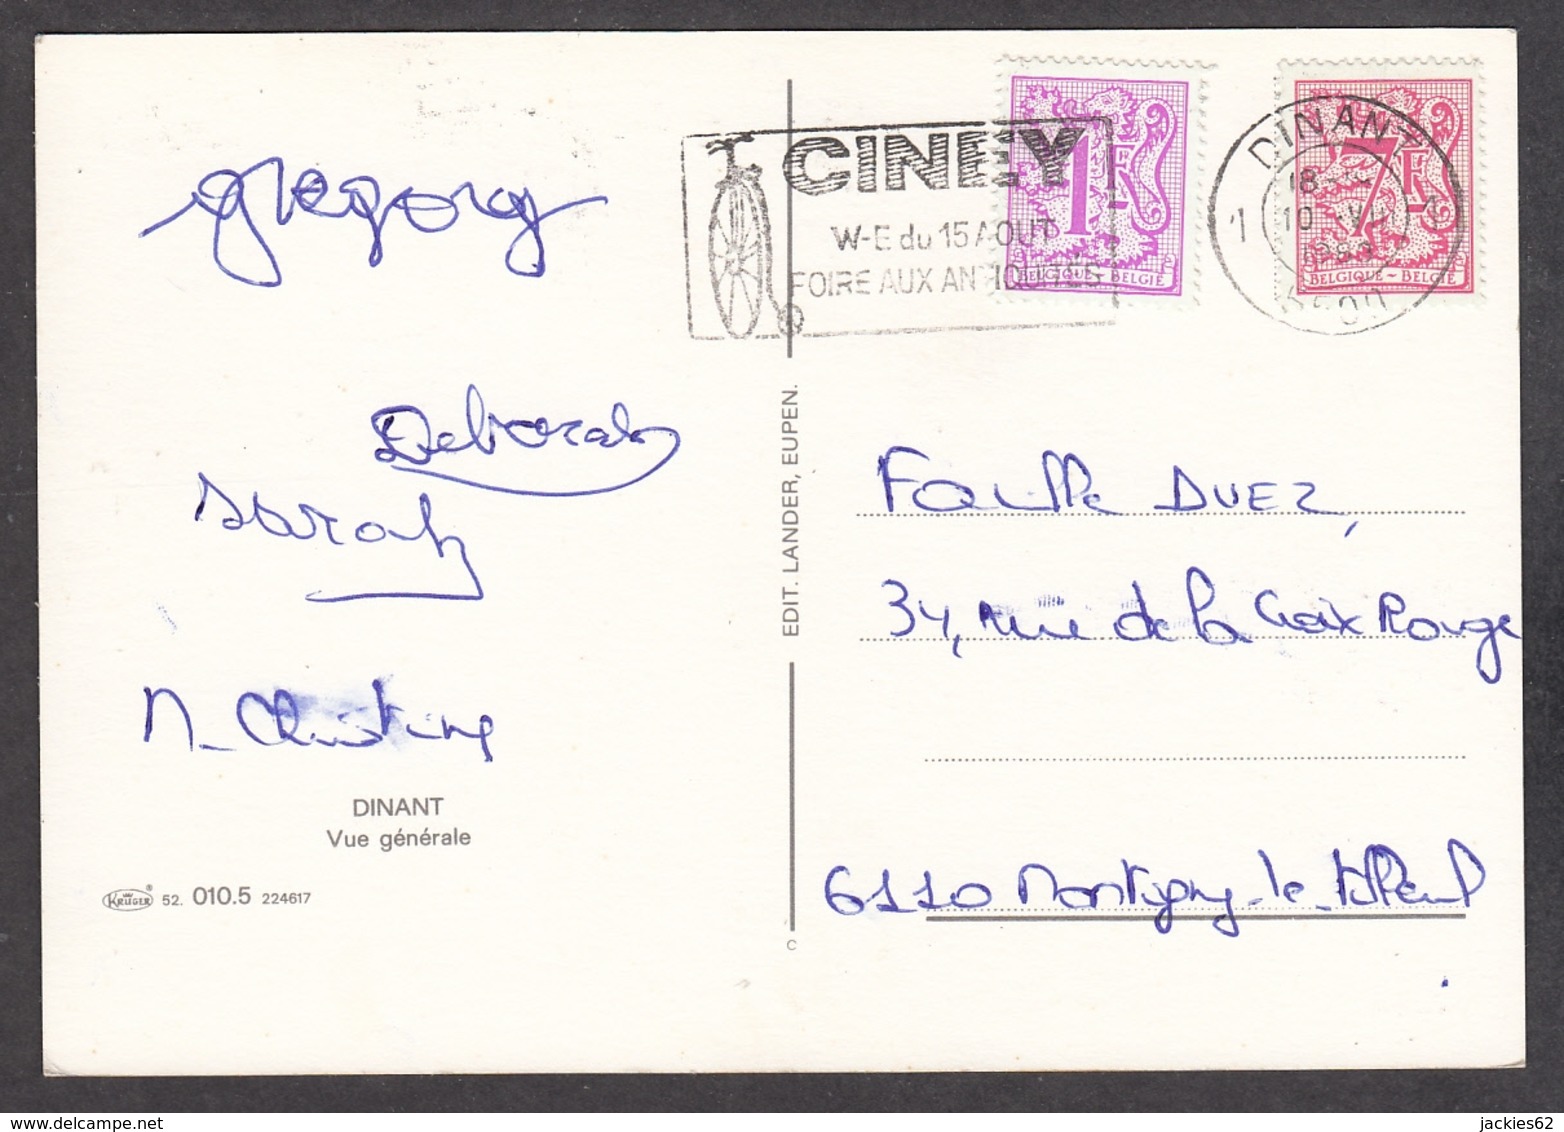 gregory
Deborah
Sarah
M-Christine
DINANT
Vue générale
KRÜGER ® 52. 010.5 224617
EDIT. LANDER, EUPEN.
C
CINEY
W-E du 15 AOUT
FOIRE AUX ANTIQUITÉS
1F
BELGIQUE - BELGIË
7F
BELGIQUE - BELGIË
DINANT
18
1 10 1
5500
Famille DUEZ,
34, rue de la Croix Rouge
6110 Montigny-le-Tilleul
jackies62